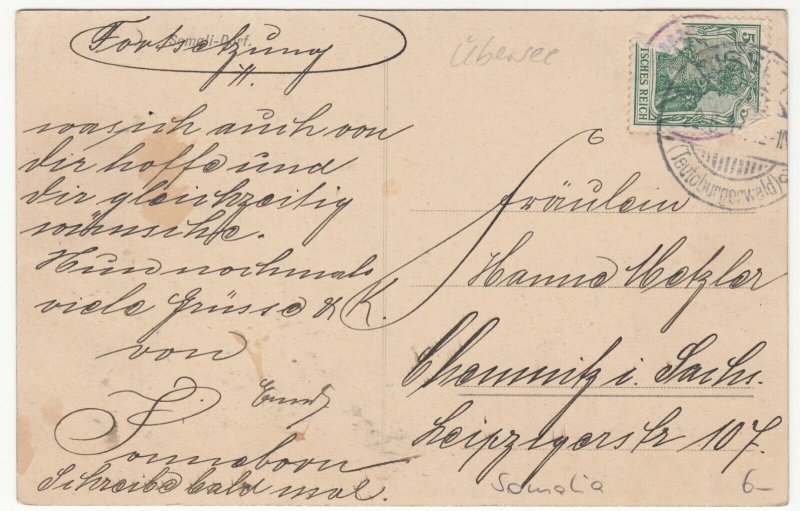 Somali-Dorf.
Fortsetzung
II.
was ich auch von
dir hoffe und
dir gleichzeitig
wünsche.
Nun nochmals
viele Grüsse & K.
von
Sonneborn
Schreibe bald mal.
Übersee
5
DEUTSCHES REICH
(Teutoburgerwald)
Fräulein
Hanna Metzler
Chemnitz i. Sachs.
Leipzigerstr 107.
Somalia
6-